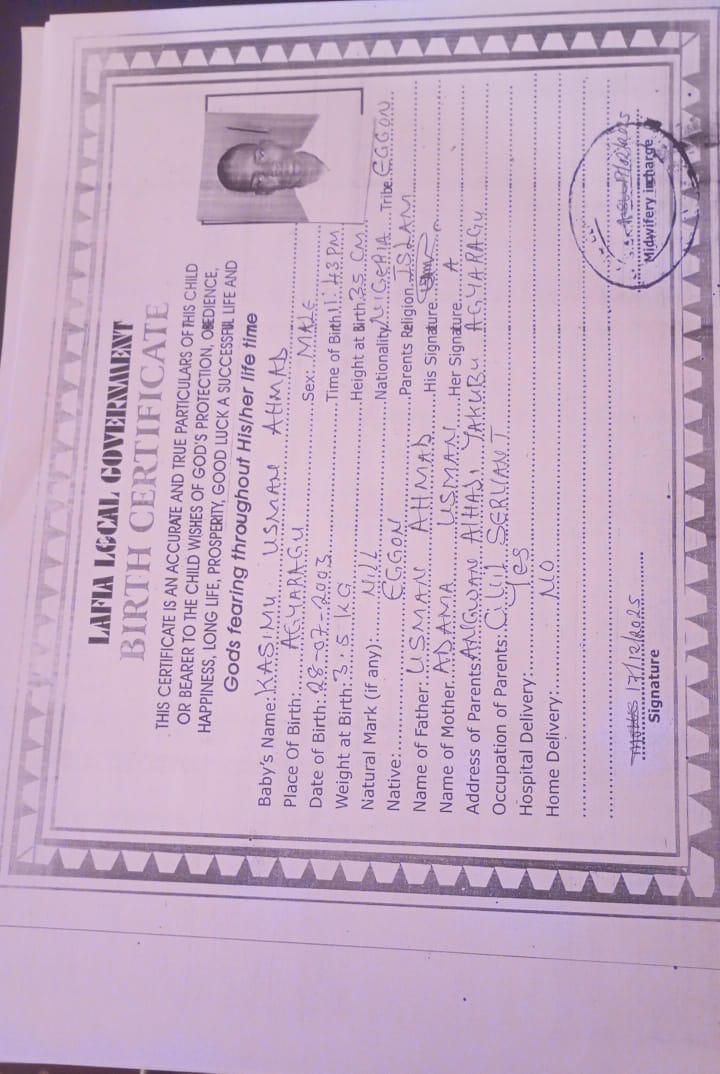 LAFIA LOCAL GOVERNMENT
BIRTH CERTIFICATE
THIS CERTIFICATE IS AN ACCURATE AND TRUE PARTICULARS OF THIS CHILD
OR BEARER TO THE CHILD WISHES OF GOD'S PROTECTION, OBEDIENCE,
HAPPINESS, LONG LIFE, PROSPERITY, GOOD LUCK A SUCCESSFUL LIFE AND
Gods fearing throughout His/her life time
Baby's Name: KASIMU USMAN AHMAD
Place Of Birth: AGYARAGU
Date of Birth: 28-07-2003 Sex: MALE
Weight at Birth: 3.5 KG Time of Birth: 11:43 PM
Natural Mark (if any): Nill Height at Birth 35 CM
Native: EGGON Nationality NIGERIA Tribe EGGON
Name of Father: USMAN AHMAD Parents Religion ISLAM
Name of Mother ADAMA USMAN His Signature
Address of Parents: ANGWAN AlHAJI YAKUBU AGYARAGU Her Signature A
Occupation of Parents: Civil SERVANT
Hospital Delivery: Yes
Home Delivery: NO
17/12/2025
Signature
Midwifery incharge